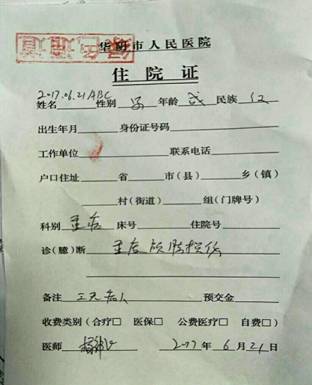 华阴市人民医院
绿色通道
住院证
2017.06.21ABC
姓名 性别 男 年龄 成 民族 汉
出生年月 身份证号码
工作单位 联系电话
户口住址 省 市(县) 乡(镇)
村(街道) 组(门牌号)
科别 重症 床号 住院号
诊(臆)断 重度颅脑损伤
备注 三无病人 预交金
收费类别(合疗□ 医保□ 公费医疗□ 自费□)
医师 2017年6月21日